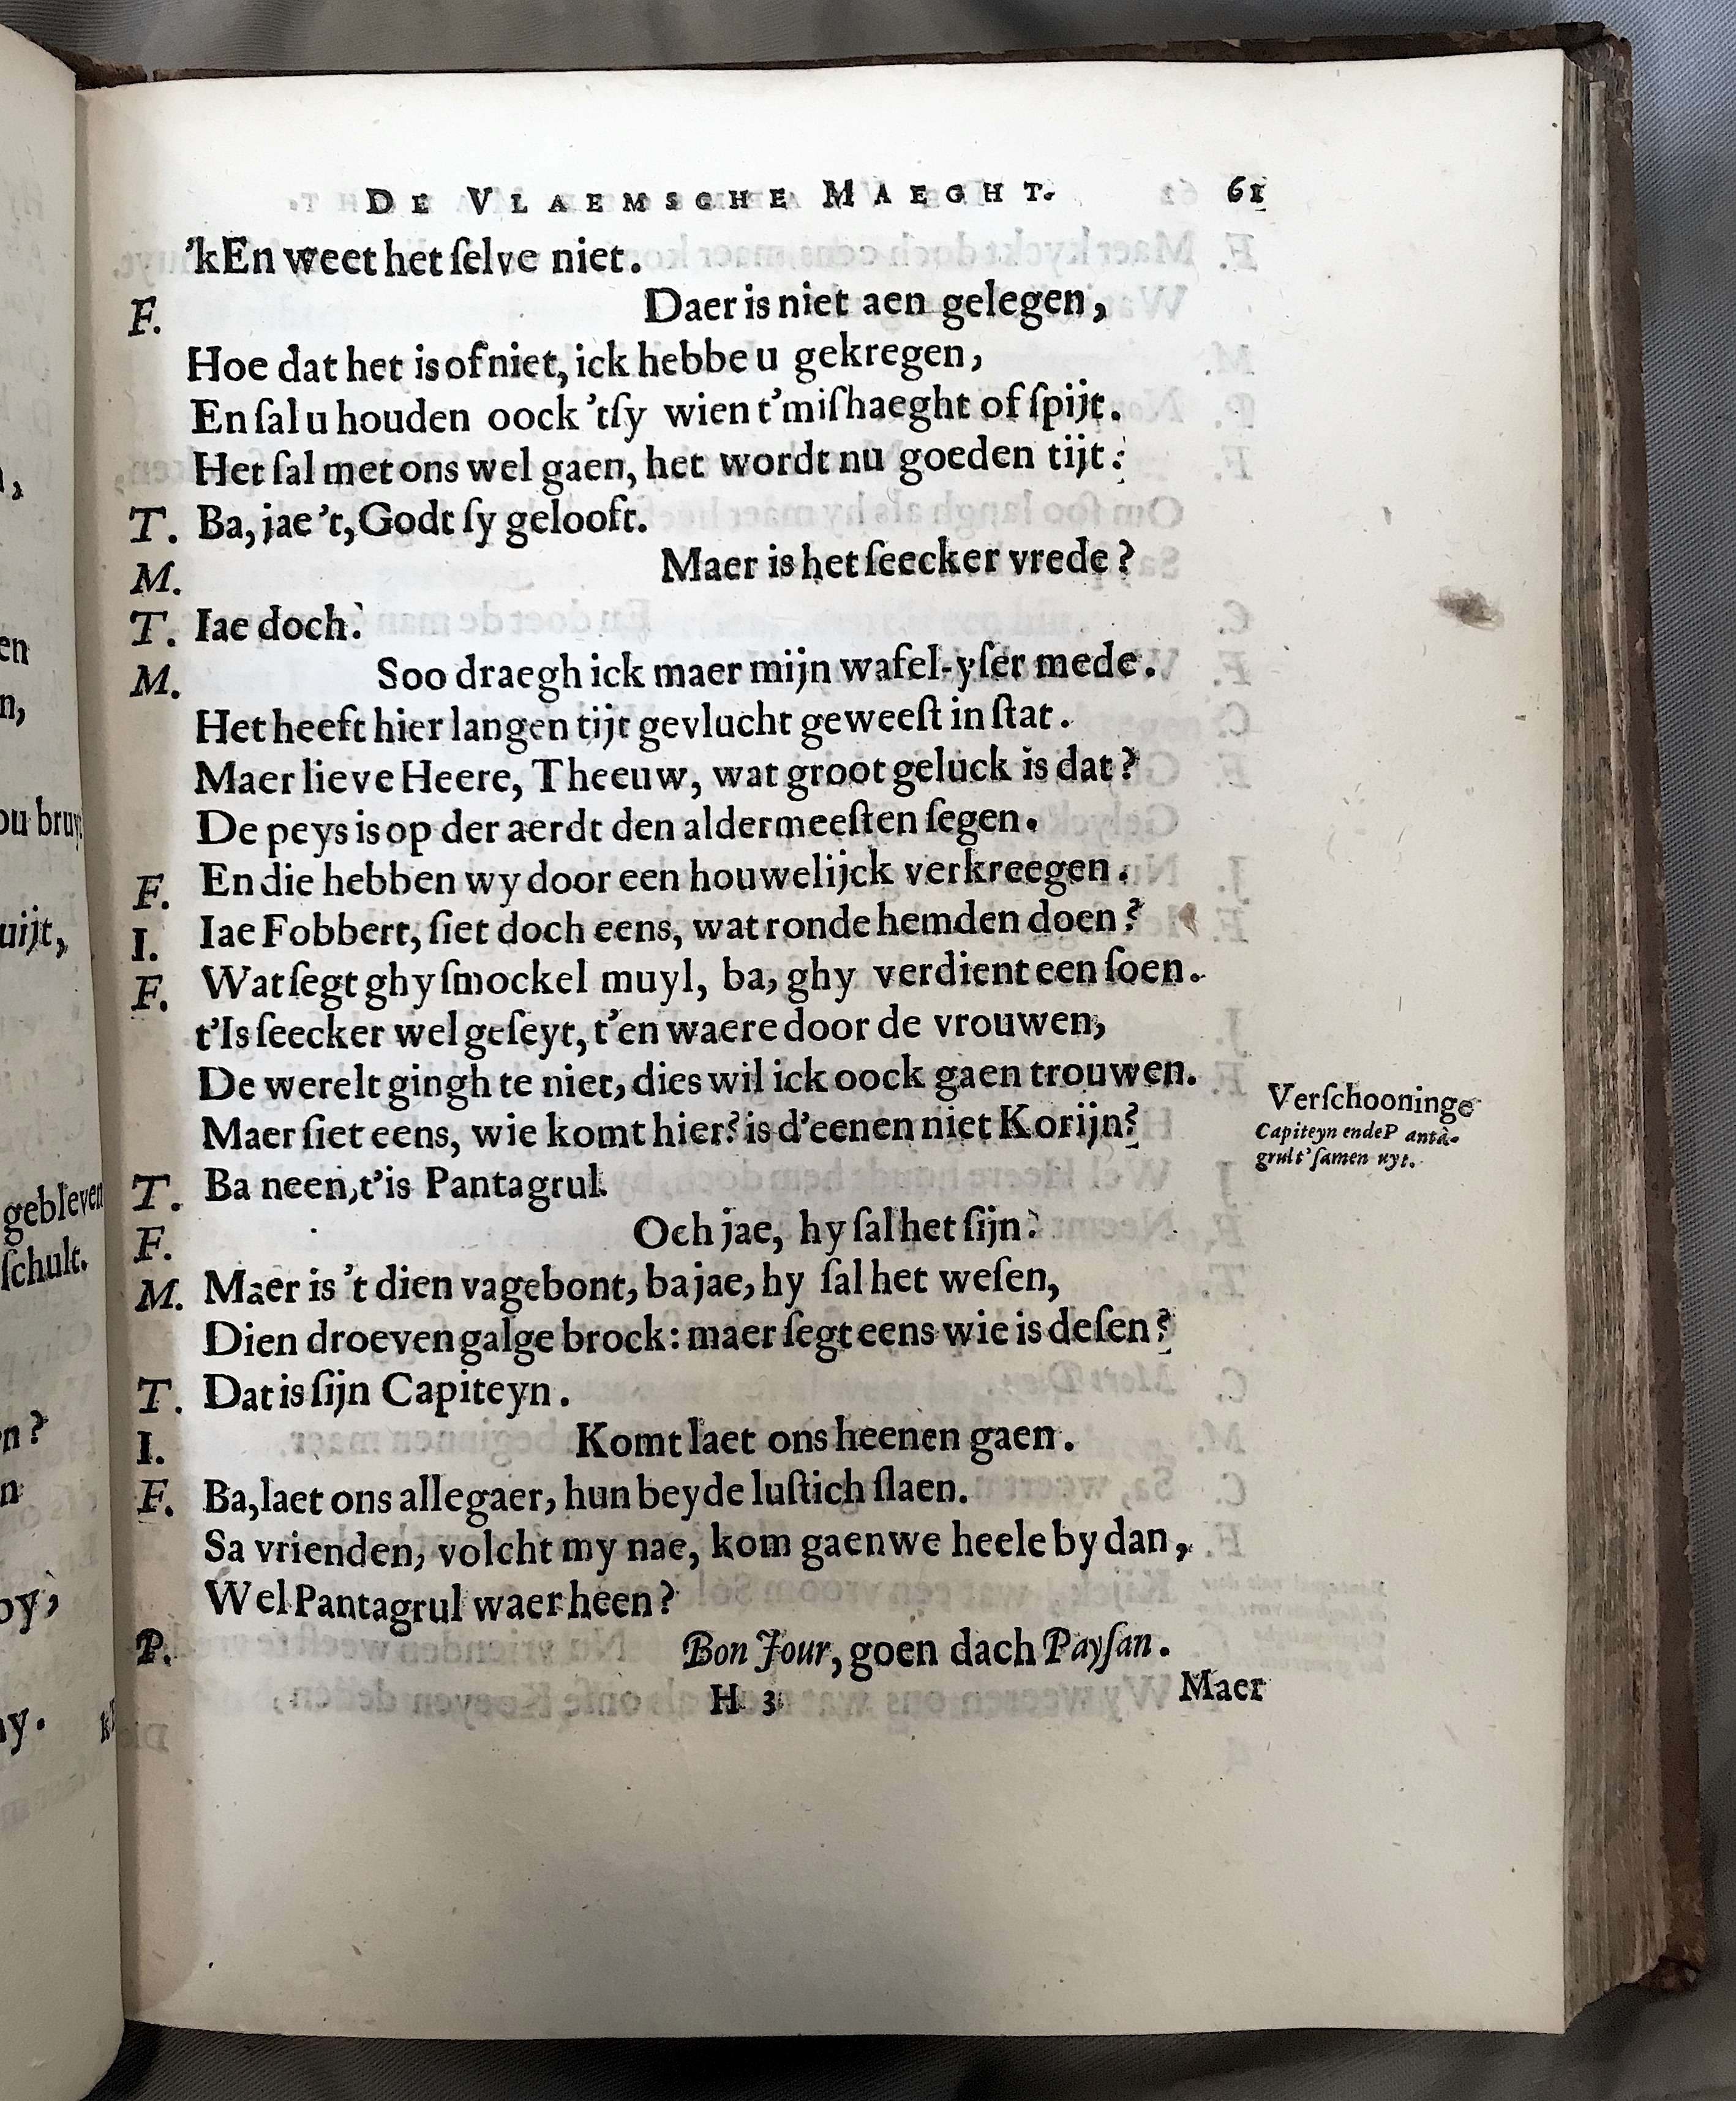 DE VLAEMSCHE MAEGHT. 61
'kEn weet het ſelve niet.
F. Daer is niet aen gelegen,
Hoe dat het is of niet, ick hebbe u gekregen,
En ſal u houden oock 'tſy wien t'miſhaeght of ſpijt.
Het ſal met ons wel gaen, het wordt nu goeden tijt:
T. Ba, jae 't, Godt ſy gelooft.
M. Maer is het ſeecker vrede?
T. Iae doch.
M. Soo draegh ick maer mijn wafel-yſer mede.
Het heeft hier langen tijt gevlucht geweeſt in ſtat.
Maer lieve Heere, Theeuw, wat groot geluck is dat?
De peys is op der aerdt den aldermeeſten ſegen.
F. En die hebben wy door een houwelijck verkreegen.
I. Iae Fobbert, ſiet doch eens, wat ronde hemden doen?
F. Wat ſegt ghy ſmockel muyl, ba, ghy verdient een ſoen.
t'Is ſeecker wel geſeyt, t'en waere door de vrouwen,
De werelt gingh te niet, dies wil ick oock gaen trouwen.
Maer ſiet eens, wie komt hier? is d'eenen niet Korijn?
Verſchooninge
Capiteyn ende Panta-
grul t'ſamen uyt.
T. Ba neen, t'is Pantagrul.
F. Och jae, hy ſal het ſijn.
M. Maer is 't dien vagebont, ba jae, hy ſal het weſen,
Dien droeven galge brock: maer ſegt eens wie is deſen?
T. Dat is ſijn Capiteyn.
I. Komt laet ons heenen gaen.
F. Ba, laet ons allegaer, hun beyde luſtich ſlaen.
Sa vrienden, volcht my nae, kom gaen we heele by dan,
Wel Pantagrul waer heen?
P. Bon Jour, goen dach Payſan.
H 3 Maer